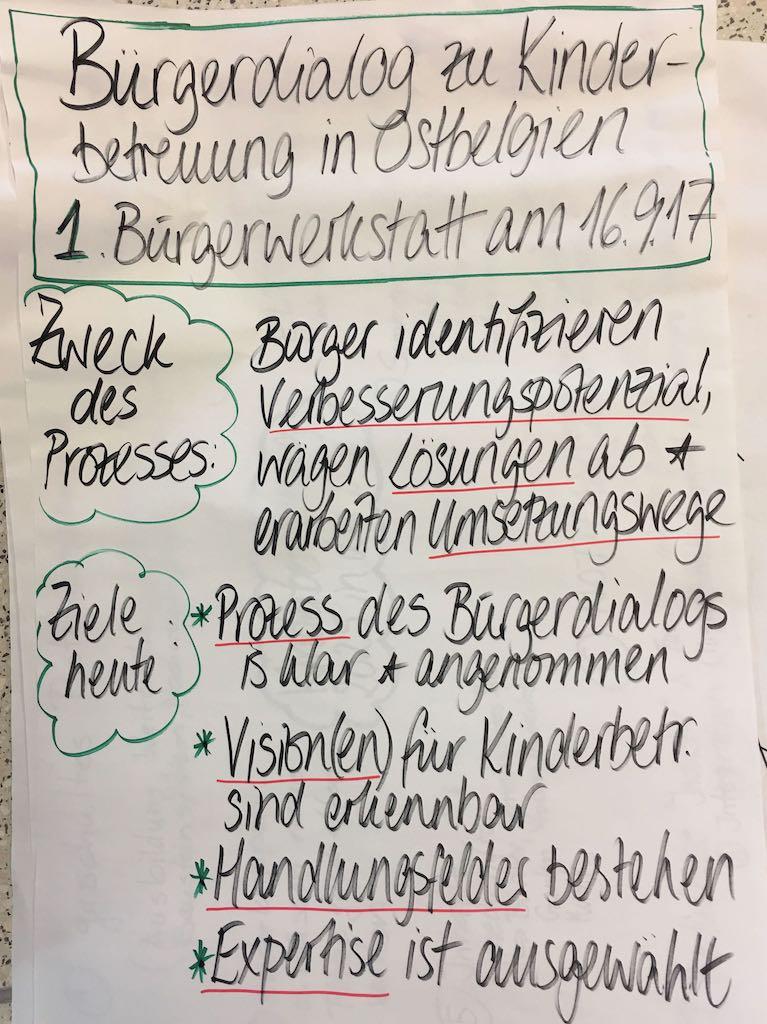 Bürgerdialog zu Kinder-
betreuung in Ostbelgien
1. Bürgerwerkstatt am 16.9.17
Zweck
des
Prozesses:
Bürger identifizieren
Verbesserungspotenzial,
wägen Lösungen ab +
erarbeiten Umsetzungswege
Ziele
heute:
* Prozess des Bürgerdialogs
is klar + angenommen
* Vision(en) für Kinderbetr.
sind erkennbar
* Handlungsfelder bestehen
* Expertise ist ausgewählt